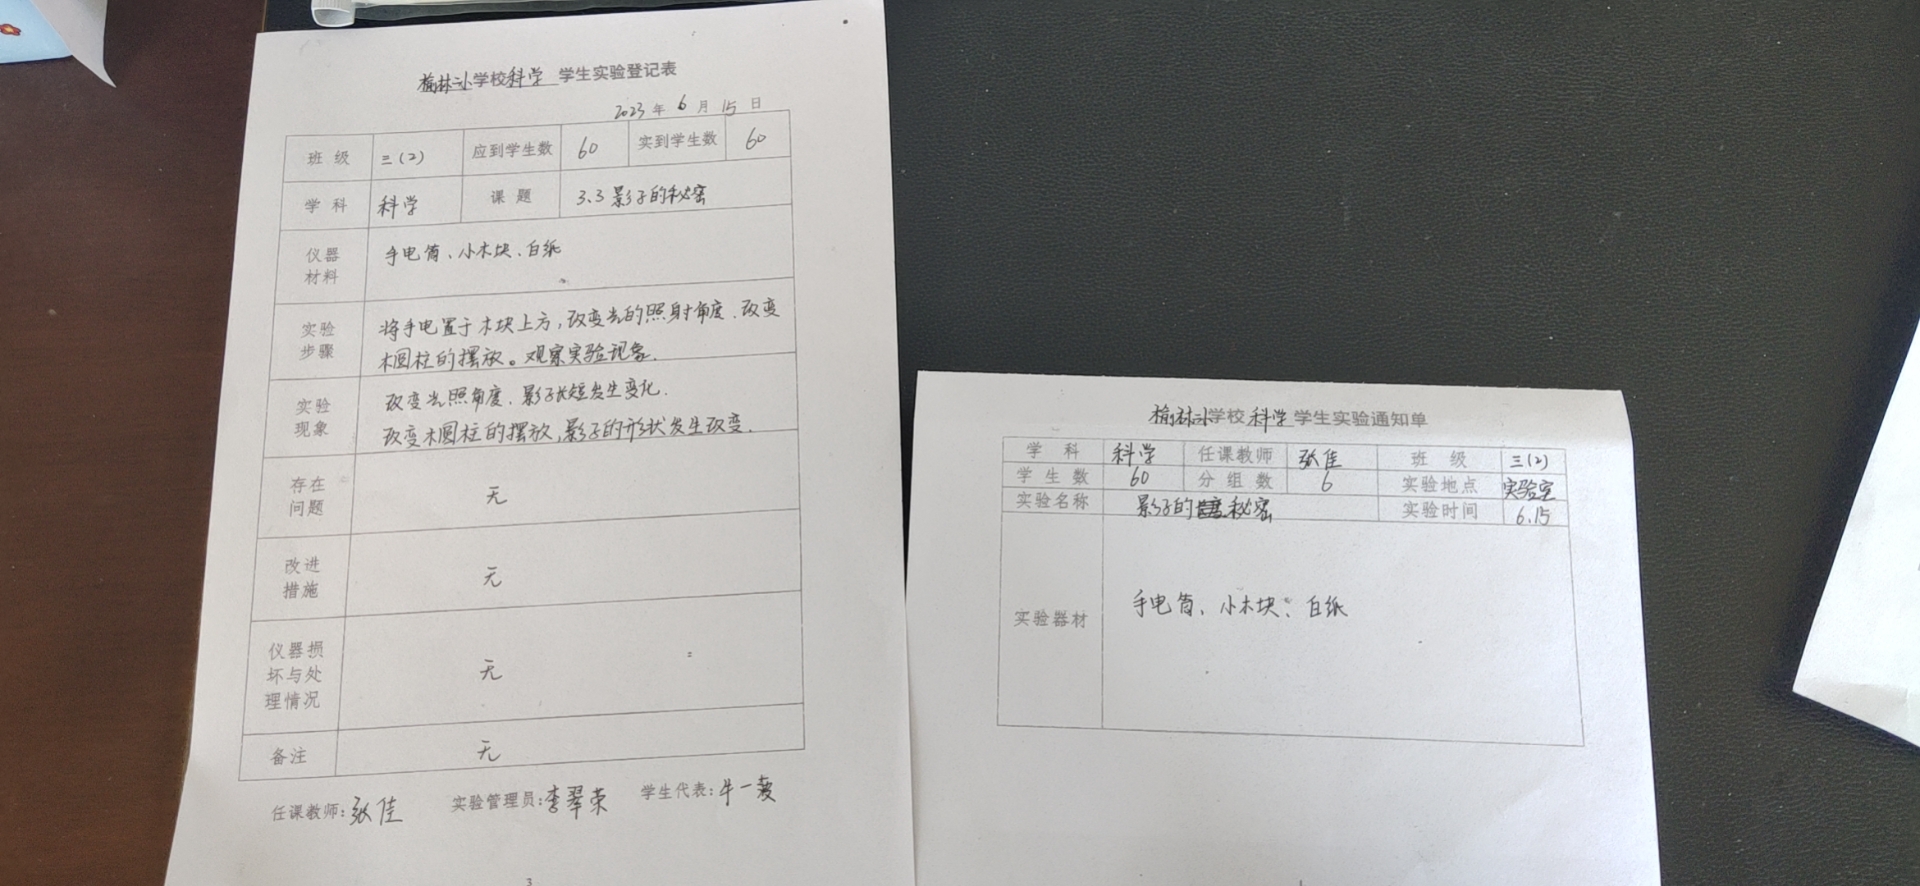 榆林小学校科学 学生实验登记表
2023年6月15日
班级 三(2) 应到学生数 60 实到学生数 60
学科 科学 课题 3.3影子的秘密
仪器材料 手电筒、小木块、白纸
实验步骤 将手电置于木块上方,改变光的照射角度、改变
木圆柱的摆放。观察实验现象.
实验现象 改变光照角度、影子长短发生变化.
改变木圆柱的摆放,影子的形状发生改变.
存在问题 无
改进措施 无
仪器损坏与处理情况 无
备注 无
任课教师:张佳 实验管理员:李翠荣 学生代表:牛一菱
3
榆林小学校科学学生实验通知单
学科 科学 任课教师 张佳 班级 三(2)
学生数 60 分组数 6 实验地点 实验室
实验名称 影子的秘密 实验时间 6.15
实验器材 手电筒、小木块、白纸
1